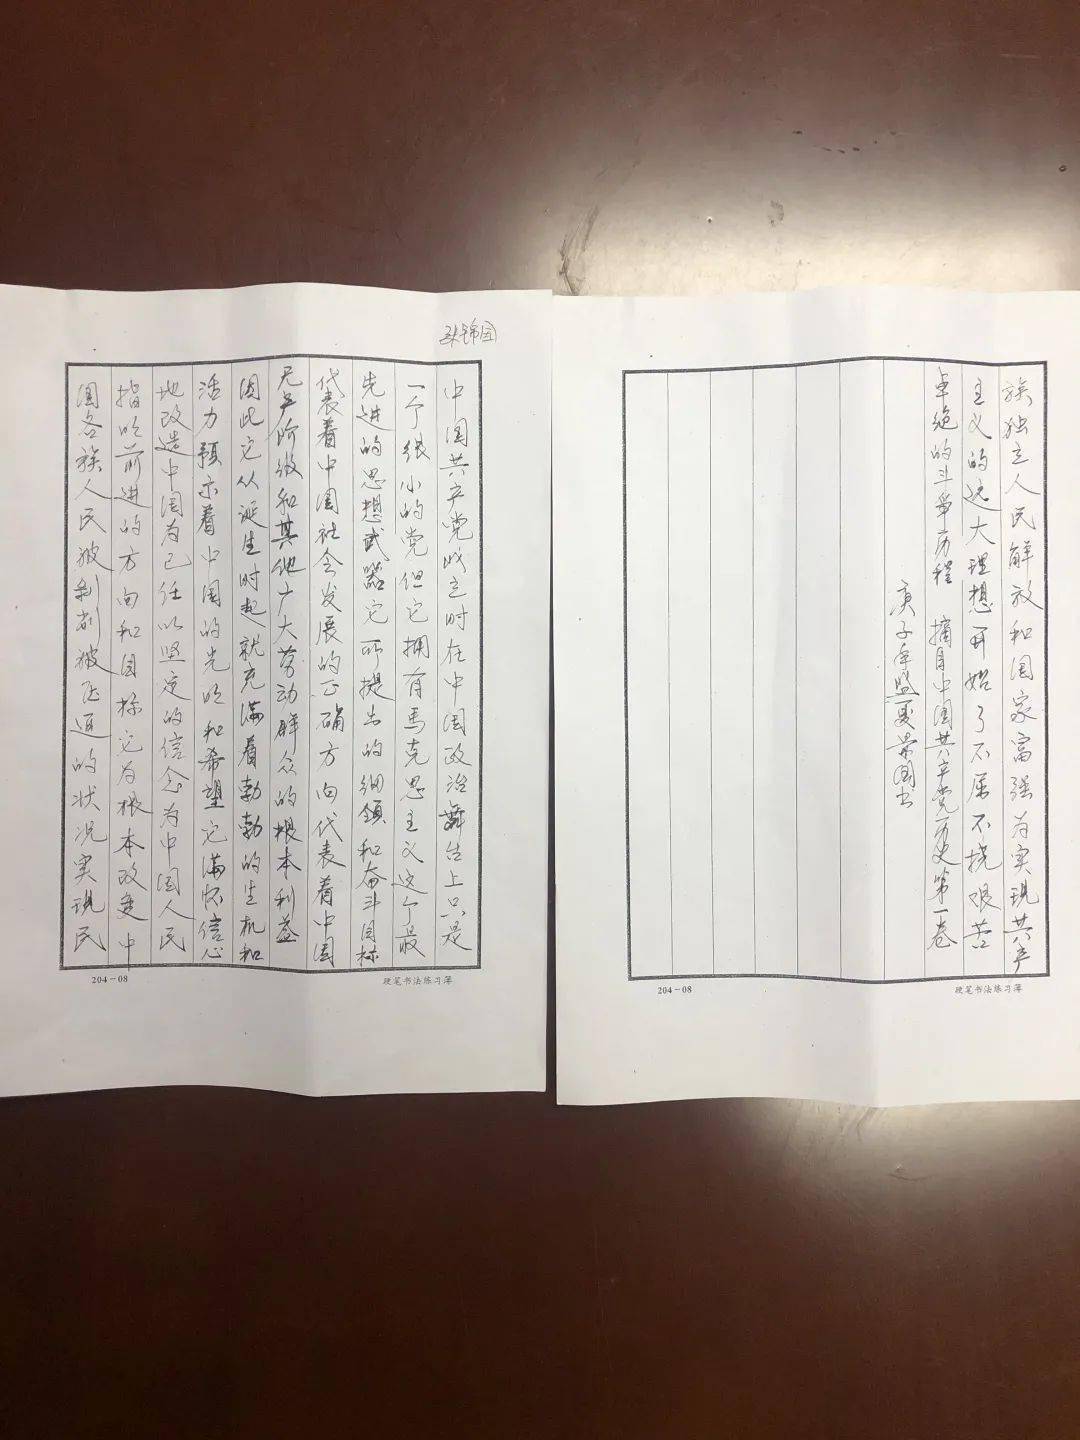 张锦国
中国共产党成立时在中国政治舞台上只是
一个很小的党但它拥有馬克思主义这个最
先进的思想武器它所提出的纲领和奋斗目标
代表着中国社会发展的正确方向代表着中国
无产阶级和其他广大劳动群众的根本利益
因此它从诞生时起就充满着勃勃的生机和
活力预示着中国的光明和希望它满怀信心
地改造中国为己任以坚定的信念为中国人民
指明前进的方向和目标它为根本改变中
国各族人民被剥削被压迫的状况实现民
204-08
硬笔书法练习簿
族独立人民解放和国家富强为实现共产
主义的远大理想开始了不屈不挠艰苦
卓绝的斗争历程 摘自中国共产党历史第一卷
庚子年盛夏景国书
204-08
硬笔书法练习簿